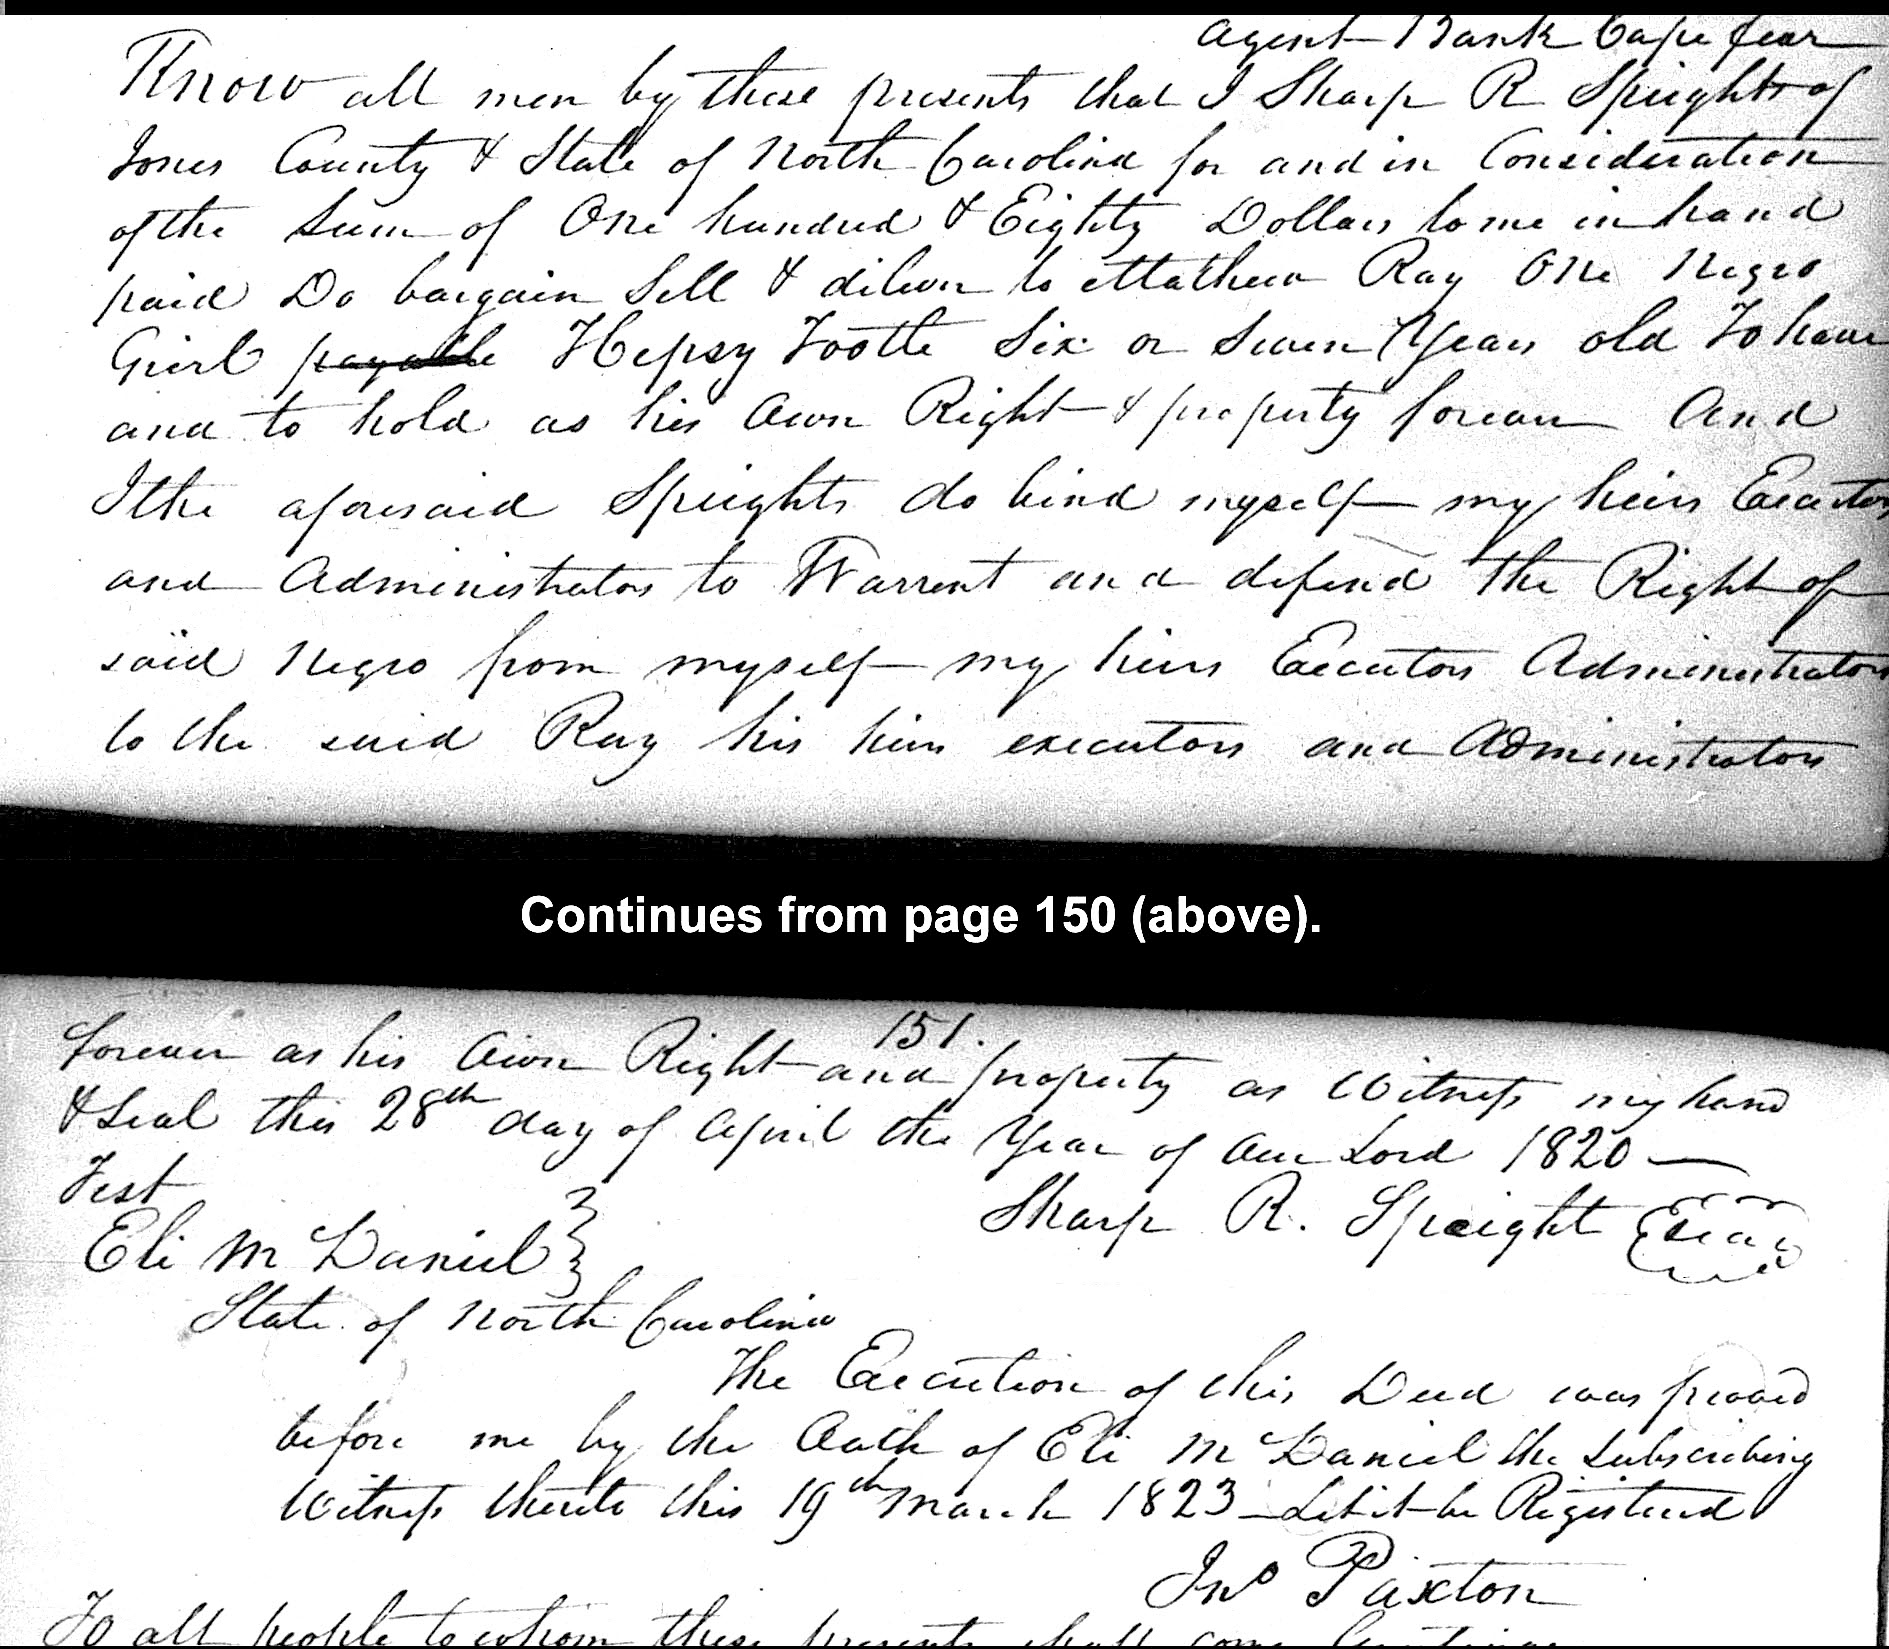 agent Bank Cape fear
Know all men by these presents that I Sharp R Speights of
Jones County & State of North Carolina for and in Consideration
of the Sum of One hundred & Eighty Dollars to me in hand
paid Do bargain Sell & deliver to Mathew Ray One Negro
Girl payable Hepsy Tootle Six or Seven Years old To have
and to hold as his Own Right & property forever And
I the aforesaid Speights do bind myself my heirs Executors
and Administrators to Warrent and defend the Right of
said Negro from myself my heirs Executors Administrators
to the said Ray his heirs executors and Administrators
Continues from page 150 (above).
151.
forever as his Own Right and property as Witness my hand
& Seal this 28th day of April the Year of Our Lord 1820
Test
Sharp R. Speight Seal
Eli McDaniel
State of North Carolina
The Execution of this Deed was proved
before me by the Oath of Eli McDaniel the Subscribing
Witness thereto this 19th March 1823 Let it be Registered
Jno Paxton
To all people to whom these presents shall come